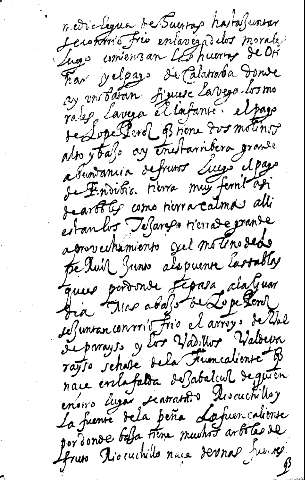 media legua de huertas hasta juntar
se con rrio frio en la vega de los morales
luego comienzan las huertas de
y el pago de Calatraba donde
ay un batan siguese la vega los mo
rales la vega el Infante. el pago
de Lope Perol q̃ tiene dos molinos
alto y baxo ay en esta ribera grande
abundancia de frutos luego el pago
de tierra muy fertil asi
de arboles como tierra calma alli
estan los texares tierra de grande
aprovechamiento y el molino de lo
pe Ruiz Junto a la puente las tablas
ques por donde se pasa a la guar
dia Mas abaxo de Lope Perol
se juntan con rrio frio el arroyo de Val
de parayso y los Vadillos Valdepa
rayso se haze de la fuen caliente q̃
nace en la falda de Jabalcuz de quien
en otro lugar se a tratado Riocuchillo y
la fuente de la peña La fuen caliente
por donde baxa tiene muchos arboles de
fruto Riocuchillo nace de unas fuentes